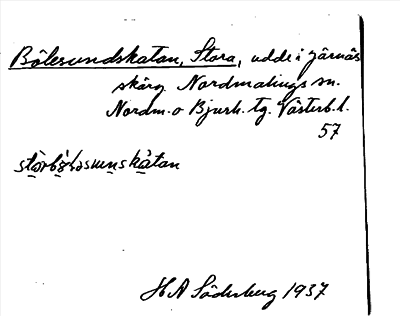 Bölesundskatan, Stora, udde i Järnäs
skärg. Nordmalings sn.
Nordm. o Bjurh. tg. Västerb. l.
57
stò̱rbö̱̀ləsuṉskàtan
H A Söderberg 1937